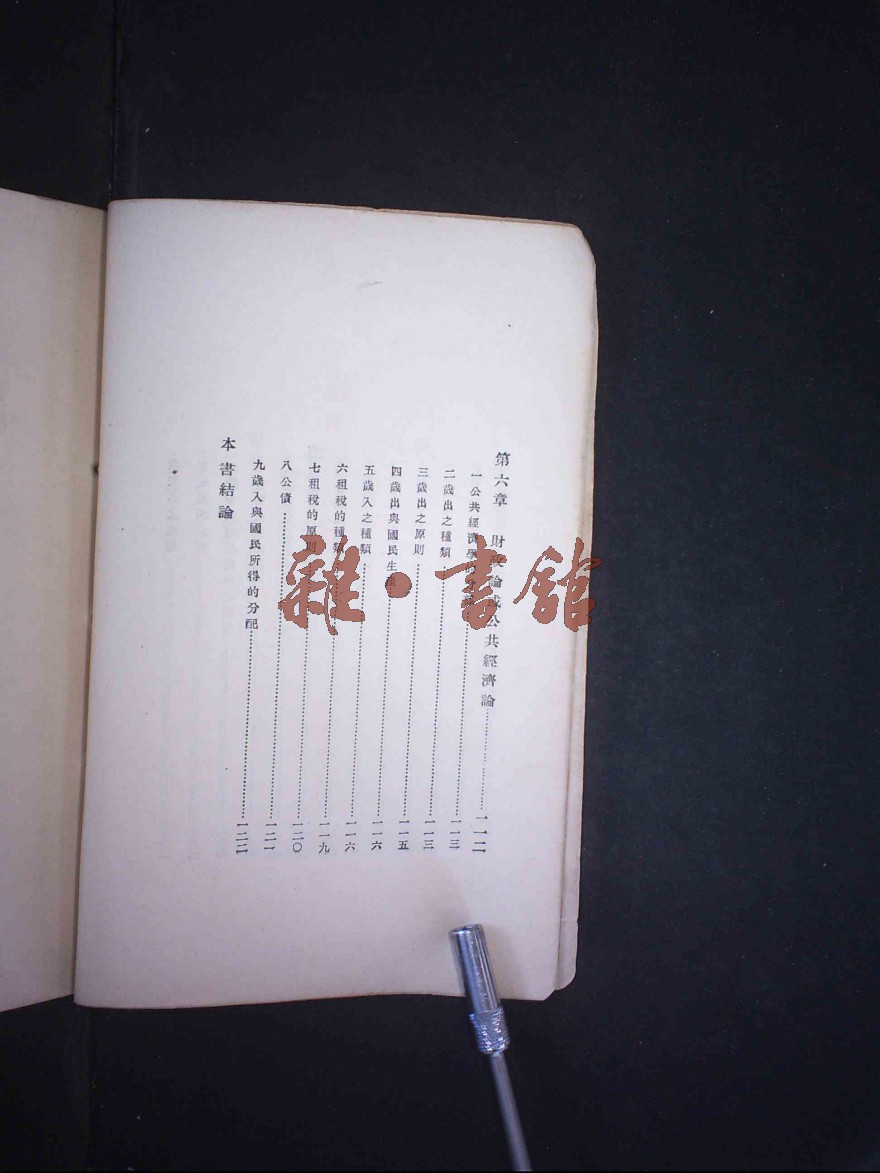 第六章 財政論或公共經濟論……一一二
一公共經濟學……一一三
二歲出之種類……一一三
三歲出之原則……一一五
四歲出與國民生產……一一六
五歲入之種類……一一六
六租稅的種類……一一九
七租稅的原則……一二〇
八公債……一二一
九歲入與國民所得的分配……一二二
本書結論
雜·書館